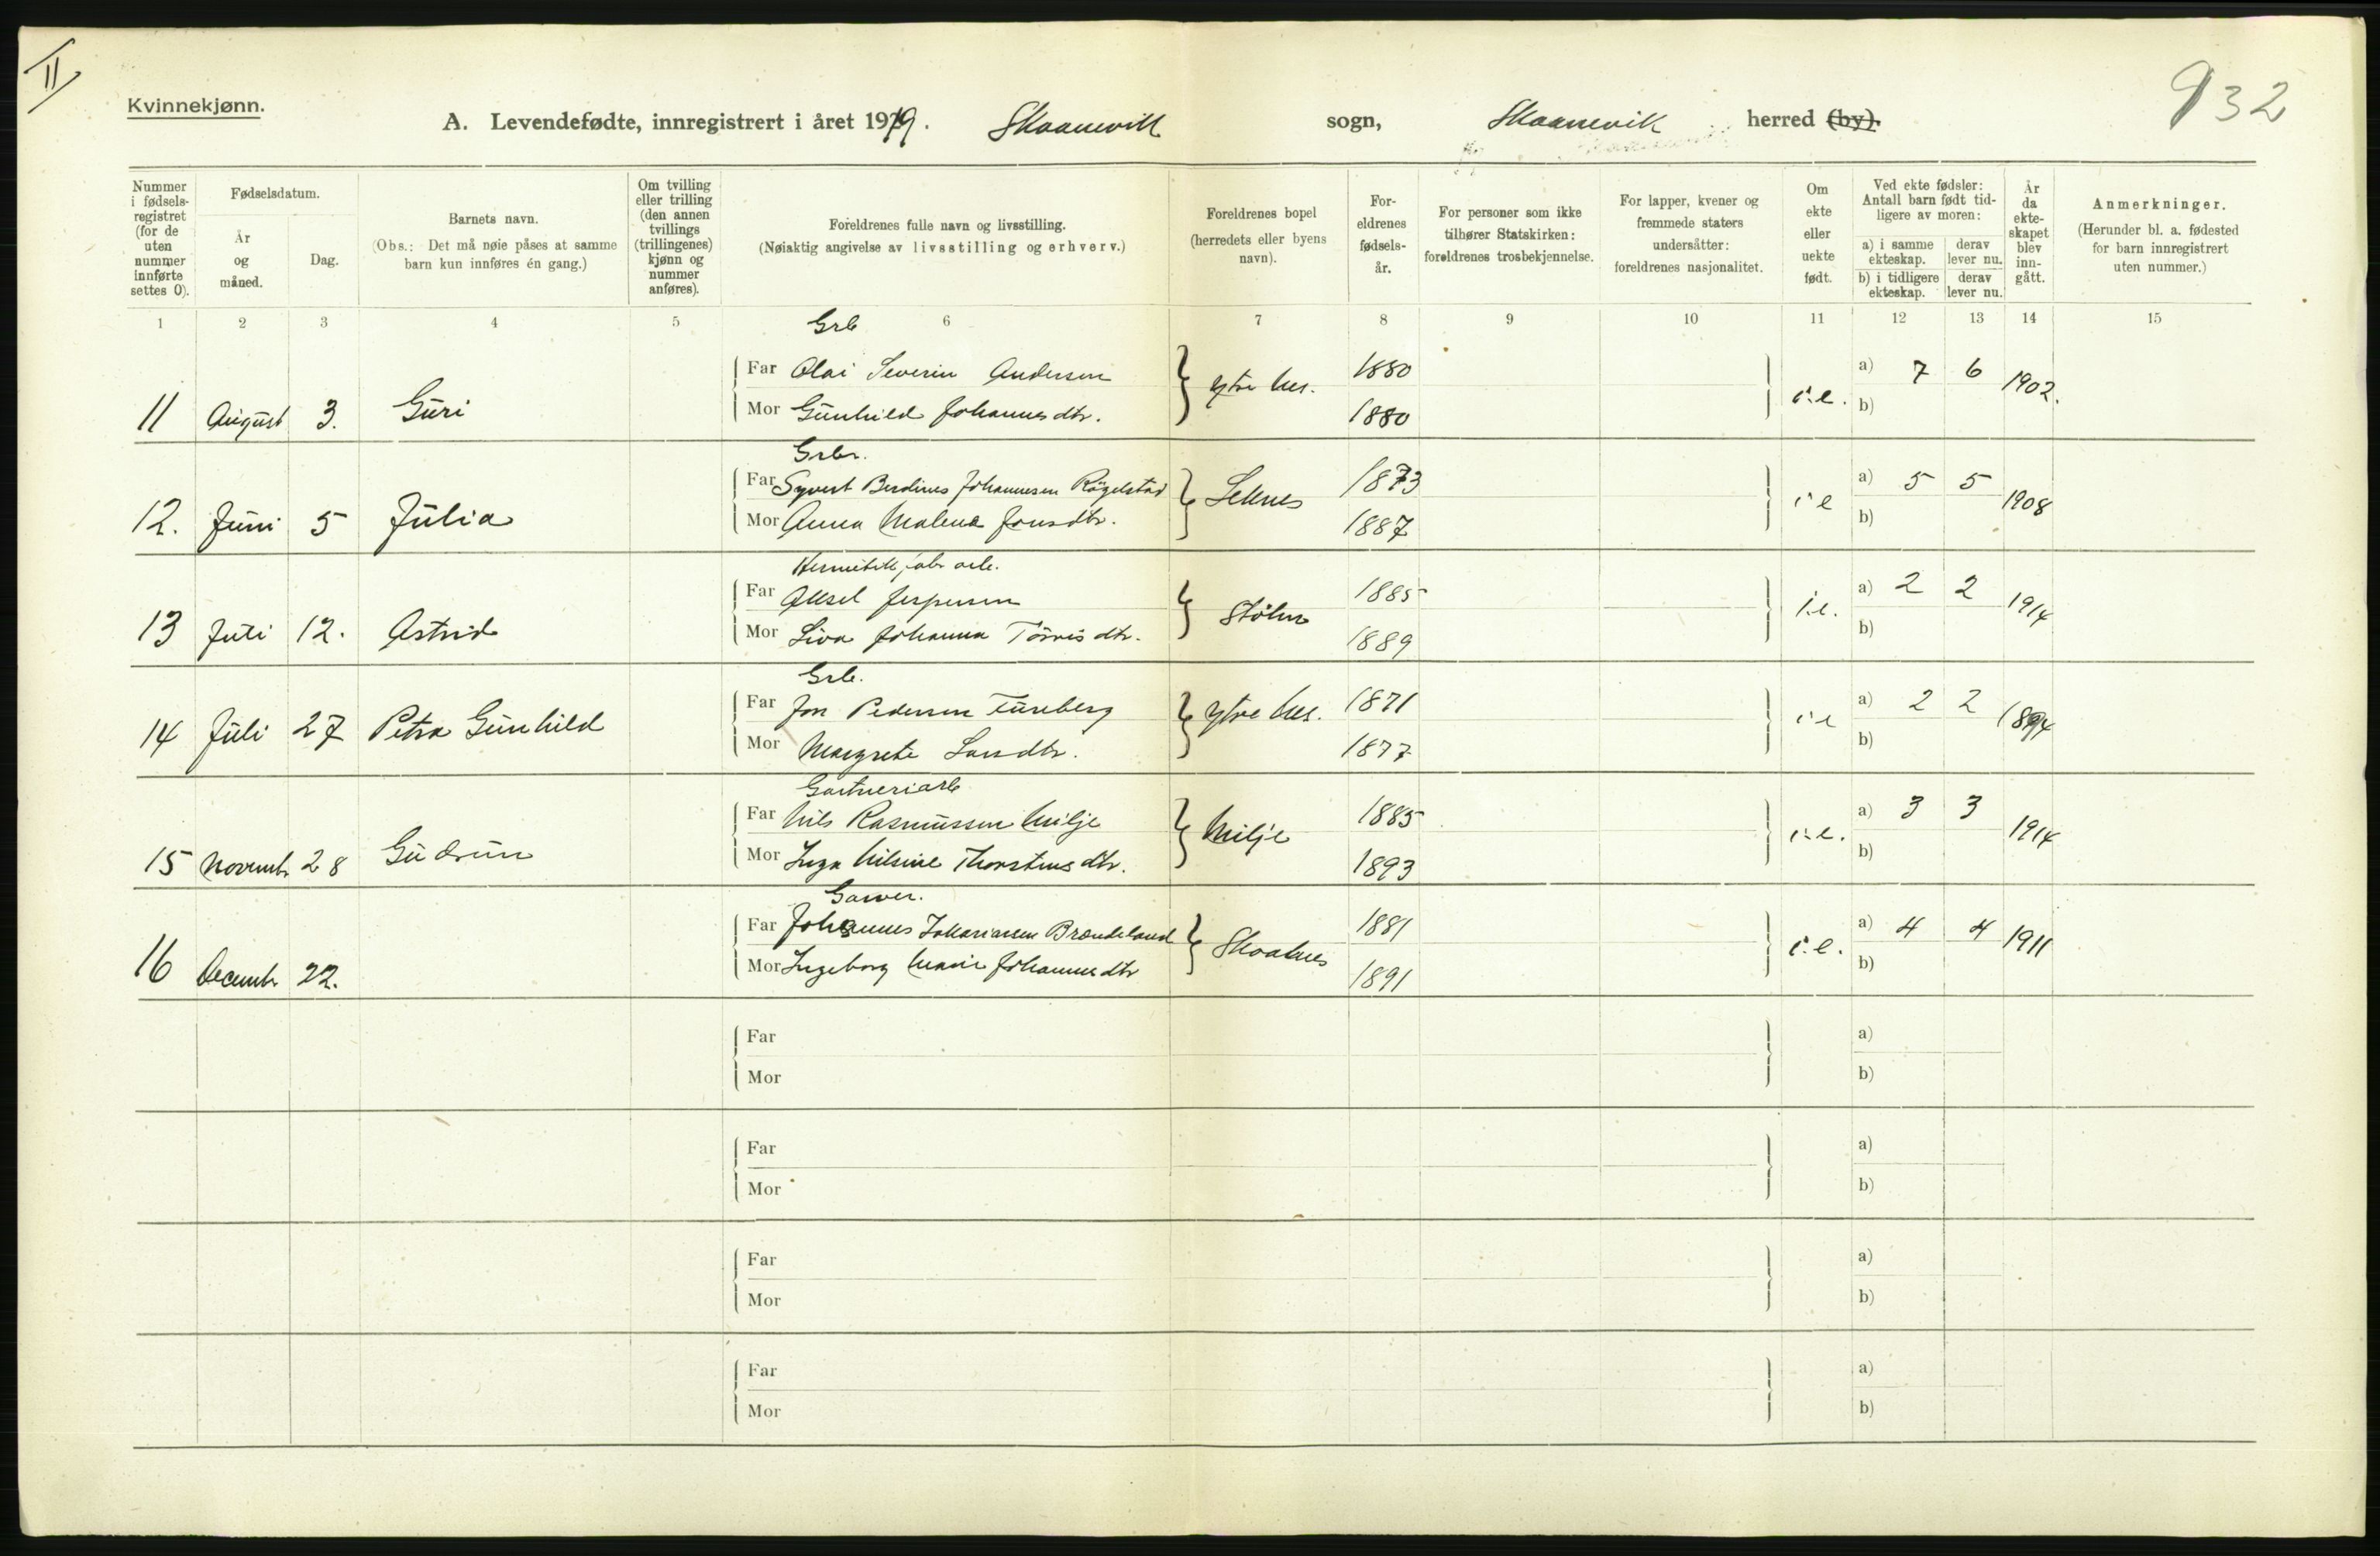 II
932
Kvinnekjønn.
A. Levendefødte, innregistrert i året 1919. Skaanevik sogn, Skaanevik herred (by).
Nummer i fødsels-registret (for de uten nummer innførte settes 0).
Fødselsdatum.
År og måned.
Dag.
Barnets navn.
(Obs.: Det må nøie påses at samme barn kun innføres én gang.)
Om tvilling eller trilling (den annen tvillings (trillingenes) kjønn og nummer anføres).
Foreldrenes fulle navn og livsstilling.
(Nøiaktig angivelse av livsstilling og erhverv.)
Foreldrenes bopel (herredets eller byens navn).
For-eldrenes fødsels-år.
For personer som ikke tilhører Statskirken: foreldrenes trosbekjennelse.
For lapper, kvener og fremmede staters undersåtter: foreldrenes nasjonalitet.
Om ekte eller uekte født.
Ved ekte fødsler: Antall barn født tid-ligere av moren:
a) i samme ekteskap.
derav lever nu.
b) i tidligere ekteskap.
derav lever nu.
År da ekte-skapet blev inn-gått.
Anmerkninger.
(Herunder bl. a. fødested for barn innregistrert uten nummer.)
1 2 3 4 5 6 7 8 9 10 11 12 13 14 15
Grb
Far Olai Severin Andersen 1880 a) 7 6
11 August 3. Guri Ytre Hus. i.e. 1902.
Mor Gunhild Johannesdtr. 1880 b)
Grbr.
Far Syvert Berdines Johannesen Røgelstad 1873 a) 5 5
12. Juni 5 Julia i e 1908
Mor Anna Malena Jonsdtr. 1887 b)
Far Aksel Jespersen 1885 a) 2 2
13 Juli 12. Astrid i.e. 1914
Mor Liva Johanna Torrisdtr. 1889 b)
Grb.
Far Jon Pedersen Tureberg 1871 a) 2 2
14 Juli 27 Petra Gunhild Ytre Hus. i e 1894
Mor Margrete Larsdtr. 1877 b)
Gartneriarb
Far Nils Rasmussen Milje 1885 a) 3 3
15 Novembr 28 Gudrun Milje i.e. 1914
Mor Inga Nilsine Thorstensdtr. 1893 b)
Garver.
Far Johannes Zakariassen Brandeland 1881 a) 4 4
16 Decembr 22. i.e. 1911
Mor Ingeborg Marie Johannesdtr 1891 b)
Far a)
Mor b)
Far a)
Mor b)
Far a)
Mor b)
Far a)
Mor b)